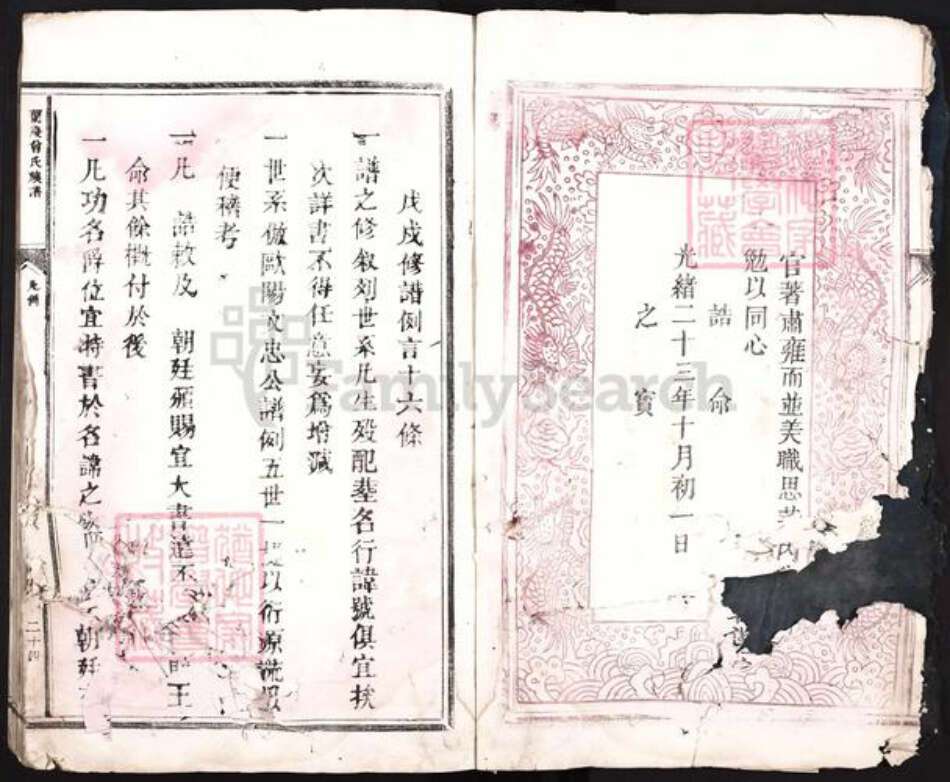 官著肅雍而並美職思其
勉以同心
誥命
光緒二十三年十月初一日
之寶
戊戌修譜例言十六條
一譜之修叙列世系凡生歿配塟名行諱號俱宜挨
次詳書不得任意妄爲增減
一世系倣歐陽文忠公譜例五世一 以衍源流
便稽考
一凡 誥敕及 朝廷頒賜宜大書遠 王
命其餘槪付於後
一凡功名爵位宜特書於名諱之 朝廷
氏族譜
二十四
FamilySearch